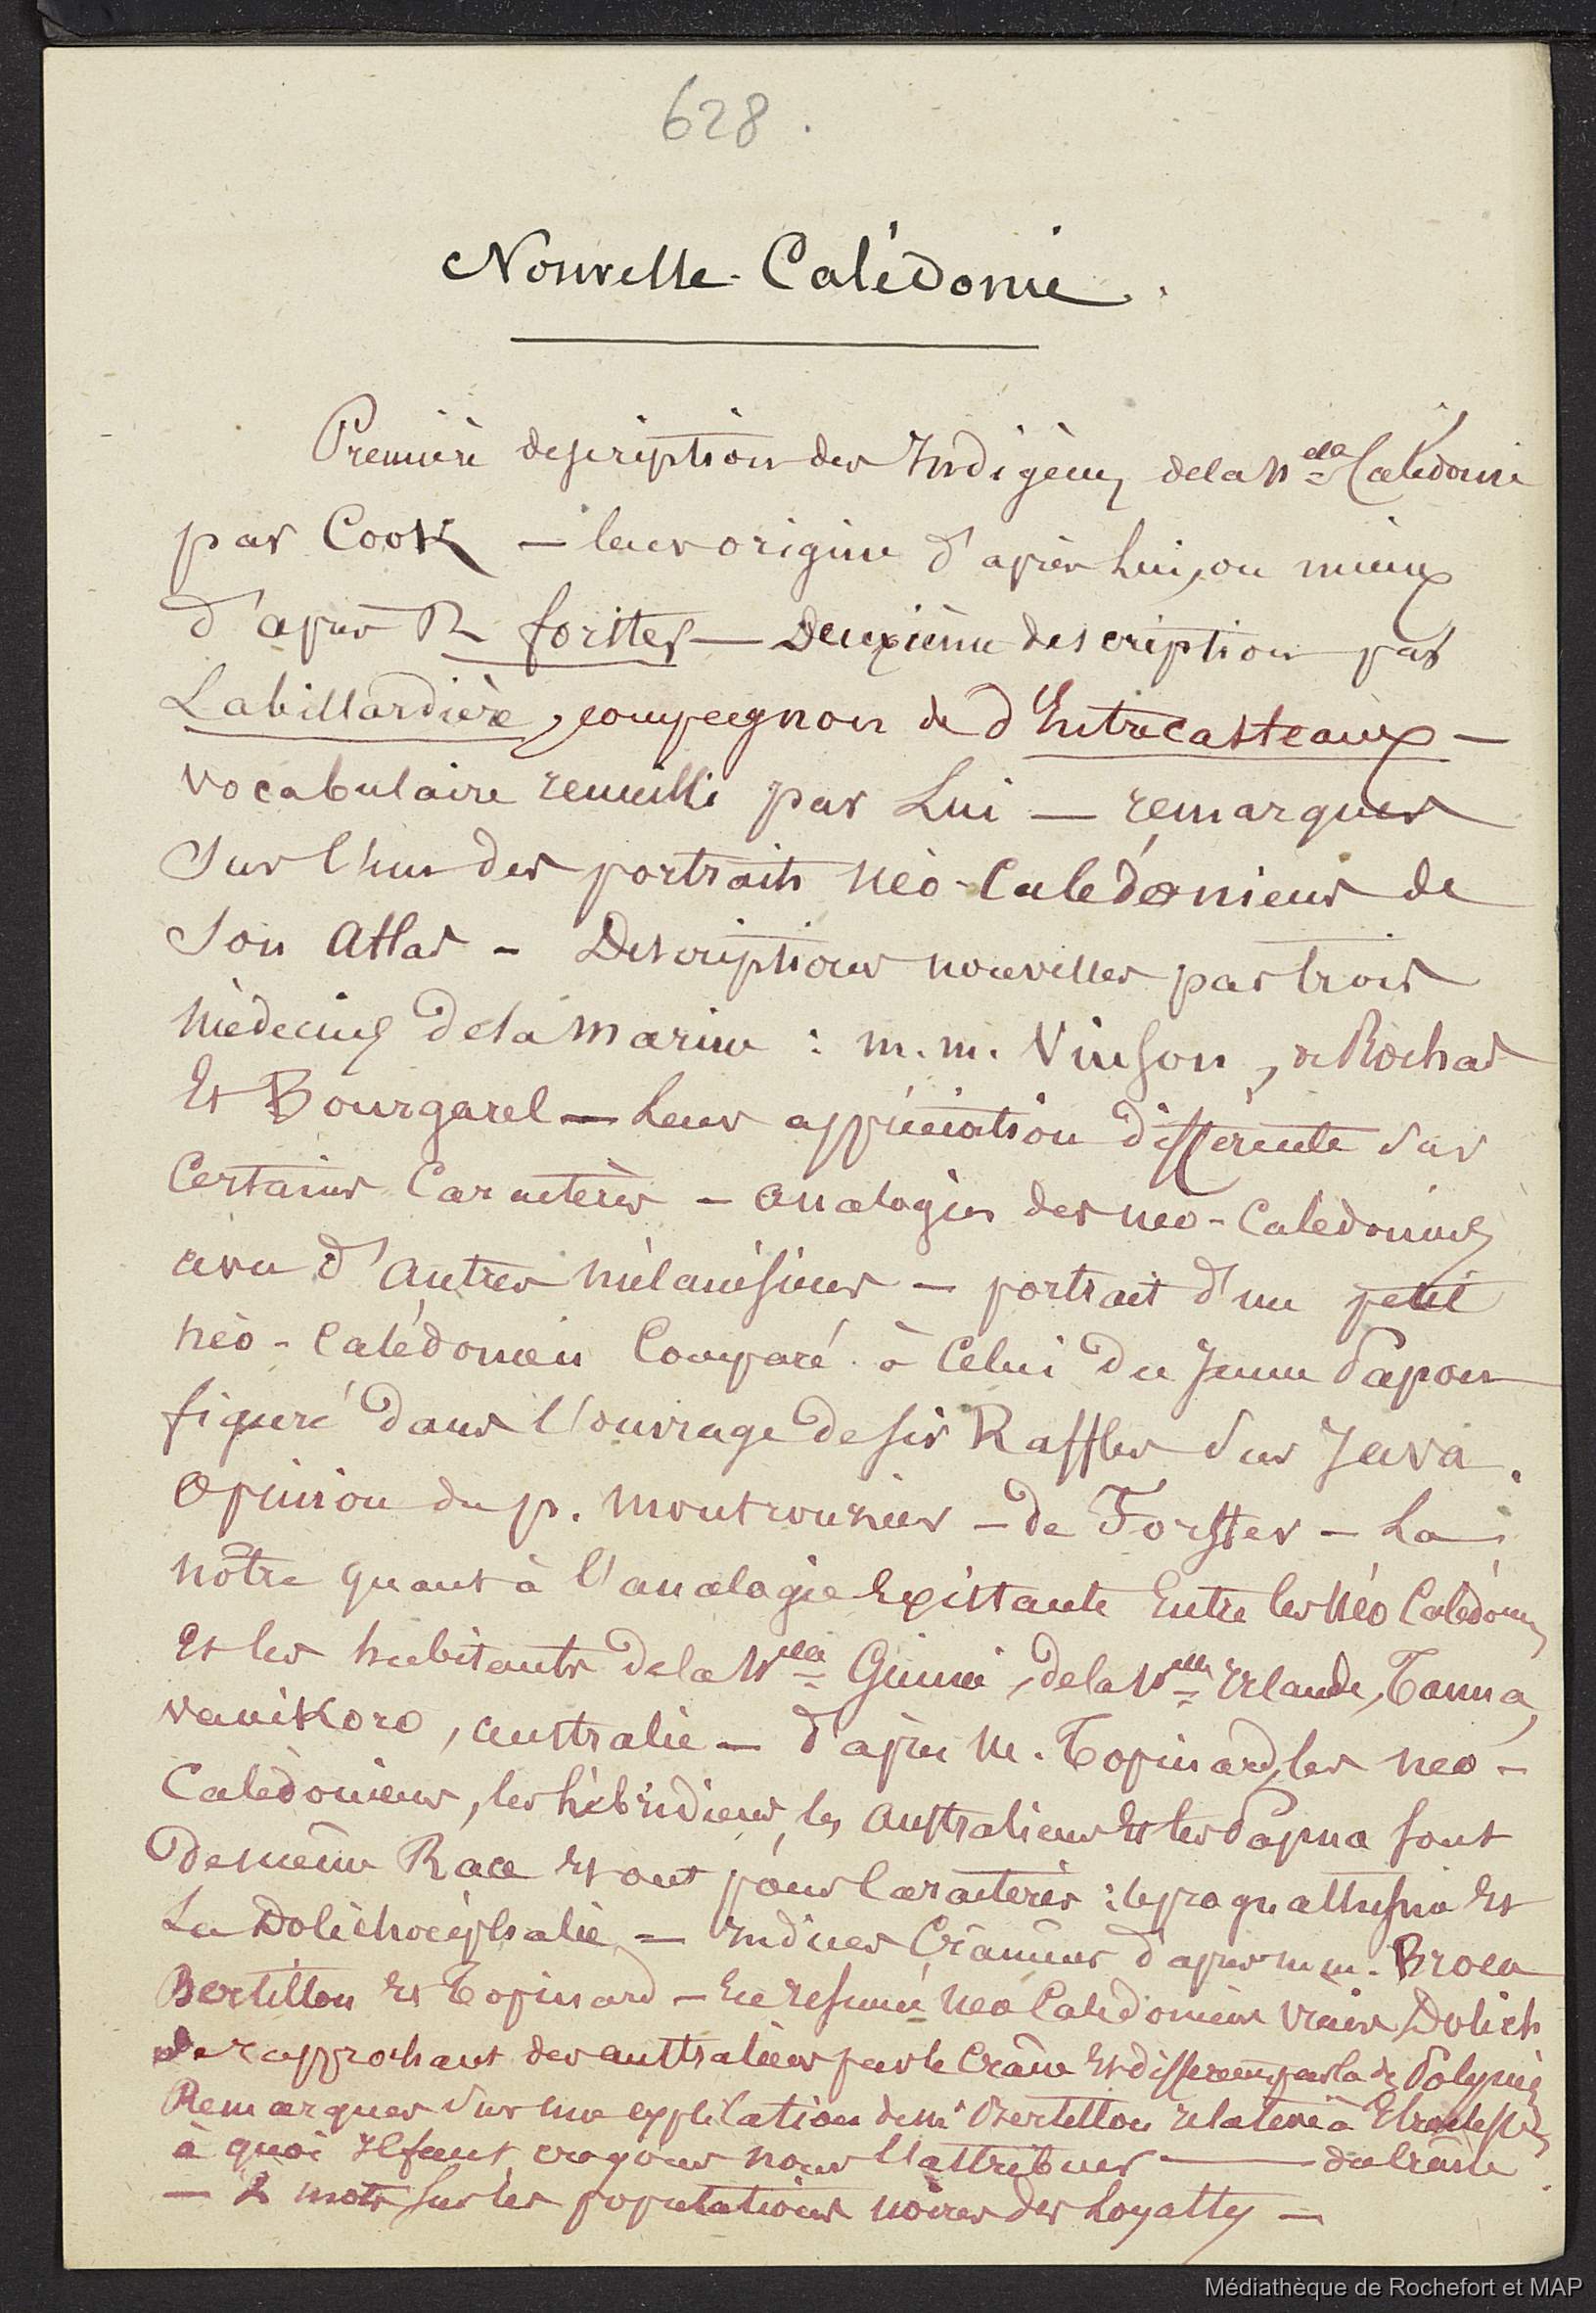 628.
Nouvelle-Calédonie.
Première description des Indigènes de la Nelle Calédonie
par Cook — leur origine d'après lui, ou mieux
d'après R forster — Deuxième description par
Labillardière, compagnon de d'Entrecasteaux —
vocabulaire recueilli par Lui — remarques
sur l'un des portraits néo-Calédoniens de
son Atlas - Descriptions nouvelles par trois
médecins de la marine : m.m. Vinson, de Rochas
Et Bourgarel — Leur appréciation différente sur
Certains Caractères - analogies des néo-Calédoniens
avec d'autres mélanésiens - portrait d'un petit
néo-Calédonien Comparé à Celui du Jeune Papou
figuré dans l'ouvrage de sir Raffles sur Java.
Opinion du p. montrouzier - de Forster - La
nôtre quant à l'analogie Existante Entre les Néo Calédoniens
Et les habitants de la Nlle Guinée, de la Nlle Irlande, Tanna,
vanikoro, australie — d'après M. Topinard, les néo-
Calédoniens, les hébridiens, les australiens Et les Papua sont
de même Race Et ont pour Caractères : le prognathisme Et
La Dolichocéphalie — Indices Crâniens d'après m.m. Broca
Bertillon Et Topinard — En résumé, Néo Calédoniens vrais Dolich
se rapprochant des australiens par le Crâne Et différent par là des Polynés
Remarques sur une explication de Mr Bertillon relative à
à quoi Il faut, croyons nous l'attribuer — du Crâne
— 2 mots sur les populations noires des Loyalty —
Médiathèque de Rochefort et MAP